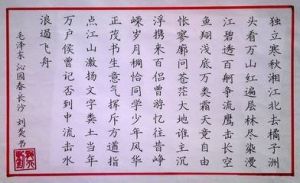 独立寒秋湘江北去橘子洲
头看万山红遍层林尽染漫
江碧透百舸争流鹰击长空
鱼翔浅底万类霜天竞自由
怅寥廓问苍茫大地谁主沉
浮携来百侣曾游忆往昔峥
嵘岁月稠恰同学少年风华
正茂书生意气挥斥方遒指
点江山激扬文字粪土当年
万户侯曾记否到中流击水
浪遏飞舟
毛泽东沁园春长沙 刘书